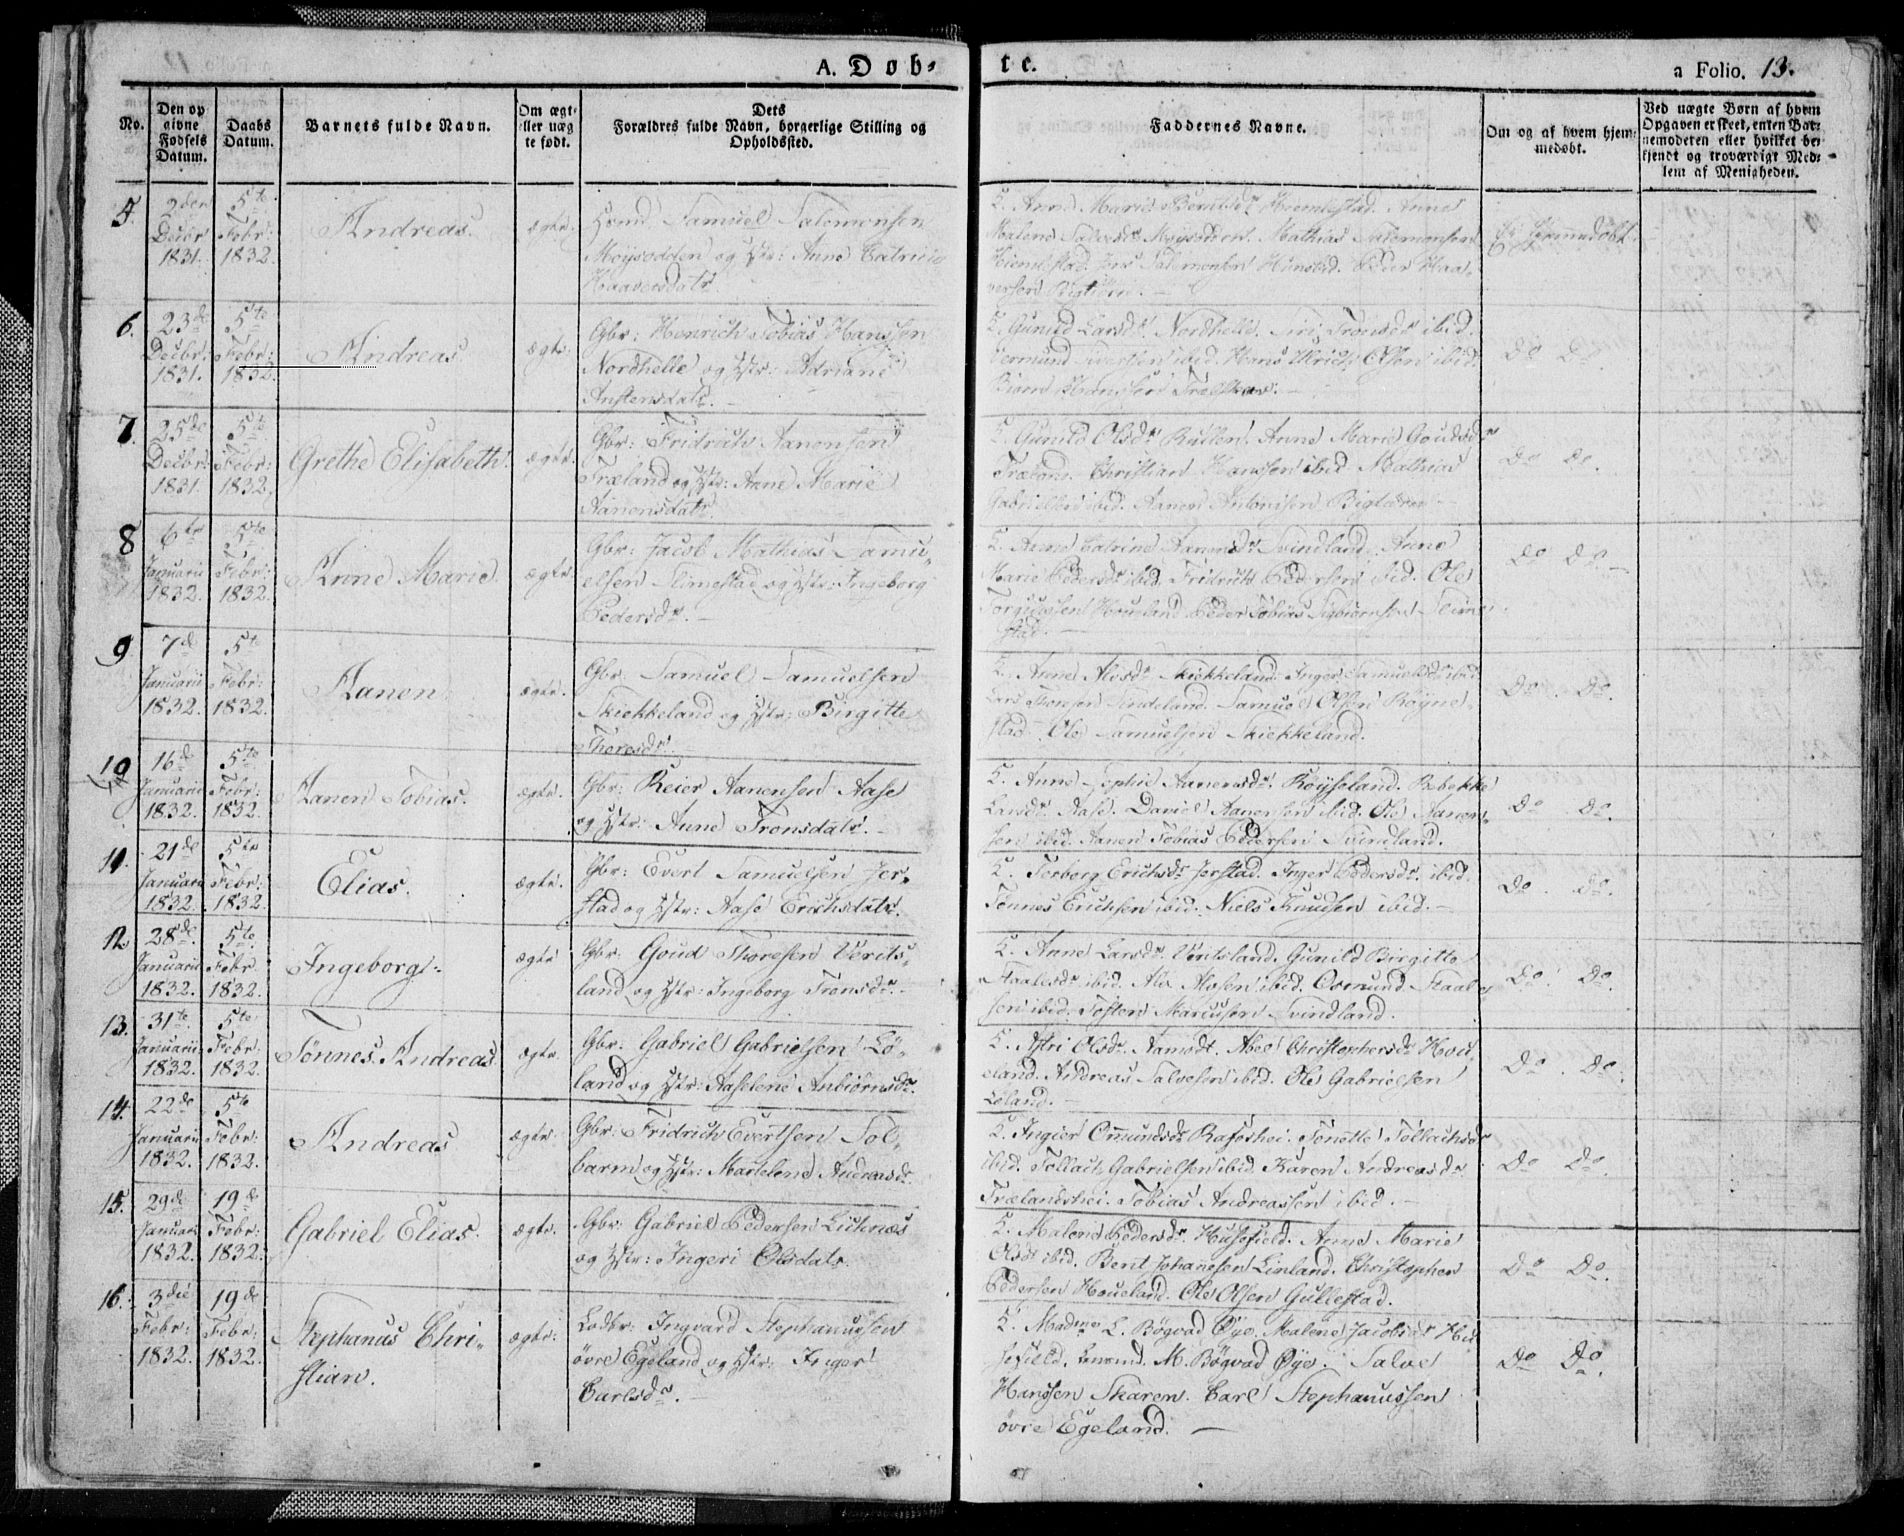 A. Døb-
te.
a Folio. 13.
No.
Den op
givne
Fødsels
Datum.
Daabs
Datum.
Barnets fulde Navn.
Om ægt-
eller uæg
te født.
Dets
Forældres fulde Navn, borgerlige Stilling og
Opholdssted.
Faddernes Navne.
Om og af hvem hjem-
medøbt.
Ved uægte Børn af hvem
Opgaven er skeet, enten Bar-
nemoderen eller hvilket be-
kjendt og troværdigt Med-
lem af Menigheden.
5.
2den
Decbr
1831.
5te
Febr:
1832.
Andreas.
ægte.
Samuel Salomonsen
Møysodden og Hstr: Anne Catrine
Haaversdatr.
Anne Marie
Malene Møysodden. Mathias Salomonsen
Jens Salomonsen Peder Haa-
versen
Ei Hjemmedøbt.
6.
23de
Decbr:
1831.
5te
Febr:
1832.
Andreas
ægte.
Gbr: Henrich Tobias Hanssen
Nordhelle og Hstr: Adriane
Anstensdatr.
F. Gunild Larsdr Nordhelle. Siri Tronsdr ibid.
Vermund Sivertsen ibid. Hans Ulrich Olsen ibid.
Hanssen
Do Do
7.
25de
Decbr:
1831.
5te
Febr:
1832.
Grethe Elisabeth.
ægte.
Gbr: Fridrich Aanonsen
Træland og Hstr: Anne Marie
Aanensdatr.
F. Gunild Olsdr Anne Marie Goudsdr
Træland. Christian Hanssen ibid. Mathias
Gabrielsen ibid. Aanen Antonisen
Do Do.
8
6te
Januarii
1832.
5te
Febr:
1832.
Anne Marie.
ægte.
Gbr: Jacob Mathias Samu-
elsen Slimestad og Hstr: Ingeborg
Pedersdr.
F. Anne Catrine Aanensdr Svindland. Anne
Marie Pedersdr ibid. Fridrich Pedersen ibid. Ole
Torgiussen Houeland. Peder Tobias Sigbiørnsen Slime-
stad.
Do Do.
9
7de
Januarii
1832.
5te
Febr:
1832.
Aanen
ægte.
Gbr: Samuel Samuelsen
Skiekkeland og Hstr: Birgitte
Thoresdr.
F. Anne Alosdr Skiekkeland. Inger Samuelsdr ibid
Lars Thorsen Samuel Olsen Røyne-
stad. Ole Samuelsen Skiekkeland.
Do. Do.
10
16de
Januarii
1832.
5te
Febr:
1832.
Aanen Tobias.
ægte.
Gbr: Reier Aanensen Aase
og Hstr: Anne Tronsdatr.
F. Anne Sophie Aanensdr Røyseland. Rebekke
Larsdr Aase. Daniel Aanensen ibid. Ole Aanon-
sen ibid. Aanen Tobias Pedersen Svindland.
Do Do.
11.
21de
Januarii
1832.
5te
Febr:
1832.
Elias.
ægte.
Gbr: Evert Samuelsen Jer-
stad og Hstr: Aase Erichsdatr.
F. Terberg Erichsdr Jerstad. Inger Pedersdr. ibid.
Tønnes Erichsen ibid. Niels Knudsen ibid.
Do. Do.
12
28de
Januarii
1832.
5te
Febr.
1832.
Ingeborg.
ægte
Gbr: Goud Thoresen Verits-
land og Hstr: Ingeborg Tronsdr.
F. Anne Larsdr Veritsland. Gunild Birgitte
Staalesdr ibid. Alo Alosen ibid. Osmund Staale-
sen ibid. Tosten Marcusen Svindland.
Do. Do.
13.
31te
Januarii
1832.
5te
Febr.
1832.
Tønnes Andreas
ægte.
Gbr: Gabriel Gabrielsen Lø-
land og Hstr: Aaselene Anbiørnsdr.
F. Astri Olsdr Aamodt. Abel Christophersdr Hou-
eland. Andreas Salvesen ibid. Ole Gabrielsen
Løland.
Do. Do.
14.
22de
Januarii
1832.
5te
Febr:
1832.
Andreas
ægte.
Gbr: Fridrich Evertsen Sol-
barm og Hstr: Martelene Andreasdr.
F. Ingier Omundsdr Rafoshei. Tonette Tollachsdr
ibid. Tollach Gabrielsen ibid. Karen Andreasdr
Trælandshei. Tobias Andreassen ibid.
Do Do.
15.
29de
Januarii
1832.
19de
Febr:
1832.
Gabriel Elias.
ægte.
Gbr: Gabriel Pedersen Lichnæs
og Hstr: Ingeri Olsdatr.
F. Malene Pedersdr Husefield. Anne Marie
Olsdr ibid. Bent Johannesen Linland. Christopher
Pedersen Houeland. Ole Olsen Gullestad.
Do Do.
16.
3die
Febr:
1832.
19de
Febr:
1832.
Stephanus Chri-
stian.
ægte:
Lodbr: Ingvard Stephanussen
øvre Egeland og Hstr: Inger
Carlsdr.
F. Madme L. Bøgvad Øye. Malene Jacobsdr Hu-
sefield. M. Bøgvad Øye. Salve
Hanssen Skaren. Carl Stephanussen
øvre Egeland.
Do Do.